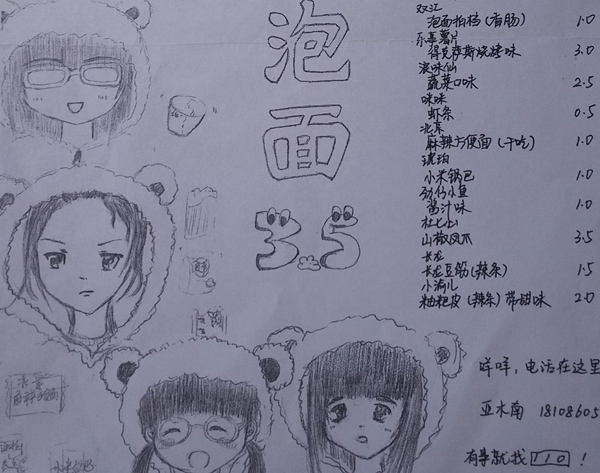 泡
面
3.5
双汇
泡面拍档(香肠) 1.0
乐事薯片
得克萨斯烧烤味 3.0
浪味仙
蔬菜口味 2.5
咪咪
虾条 0.5
北京
麻辣方便面(干吃) 1.0
琥珀
小米锅巴 1.0
劲仔小鱼
酱汁味 1.0
杜七山
山椒凤爪 3.5
长龙
长龙豆筋(辣条) 1.5
小滴儿
粬粑皮(辣条)带甜味 2.0
咩咩,电话在这里
亚木南 18108605
有事就找 110 !